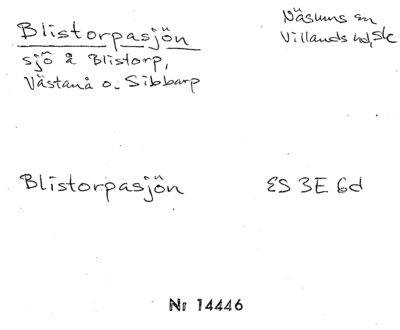 Blistorpasjön
sjö å Blistorp,
Västanå o. Sibbarp
Näsums sn
Villands hd, Sk
Blistorpasjön
ES 3E 6d
Nr 14446